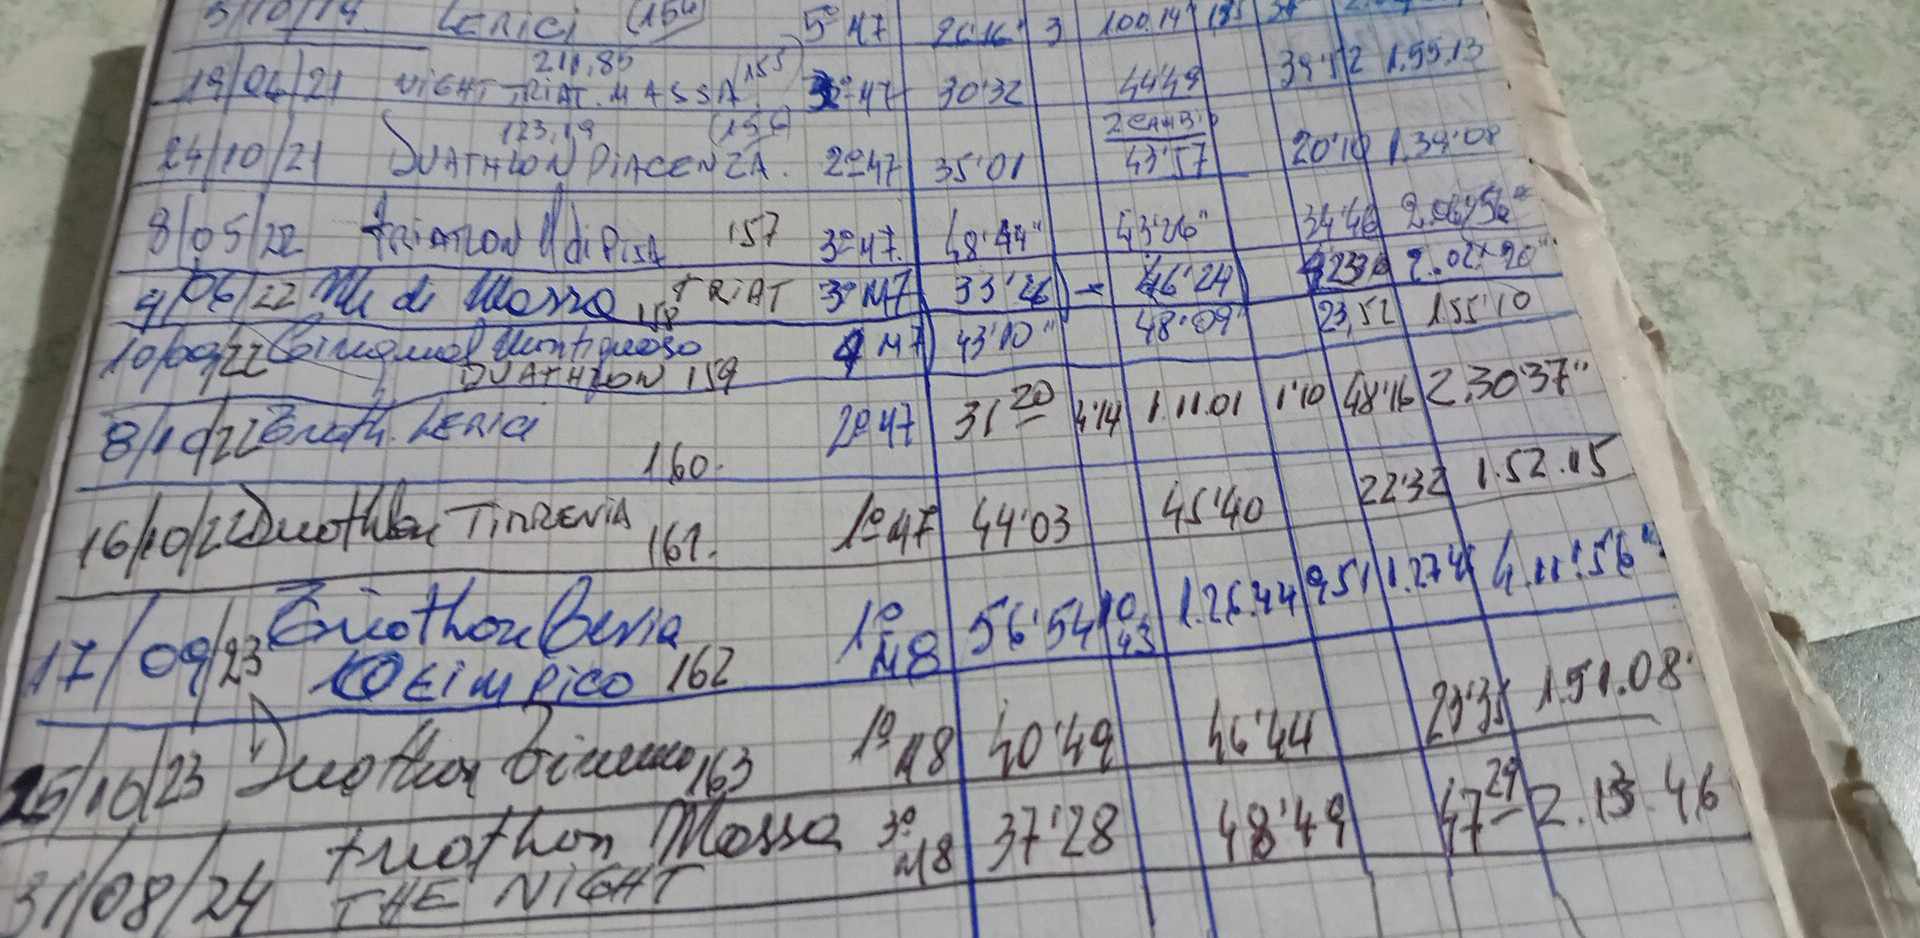 LERICI (154) 5º M7 26'16" 3 1.00.14
211,85 (155)
19/06/21 NIGHT TRIAT. MASSA 3º M7 30'32 44'49 39'12 1.55.13
123,19 (156) 2 CAMBI
24/10/21 DUATHLON PIACENZA. 2º M7 35'01 43'57 20'10 1.39'08
8/05/22 TRIATLON di PISA 157 3º M7 48'44" 43'26" 34'46 2.06'56"
4/06/22 Mi di Massa 158 TRIAT 3º M7 33'26 - 46'24 2.02'20"
10/09/22 Montignoso 4 M7 43'10" 48'09 23,52 1.55'10
DUATHLON 159
8/10/22 LERICI 2º M7 31 20 4'14 1.11.01 1'10 48'16 2.30'37"
160.
16/10/22 Duathlon TIRRENIA 161. 1º M7 44'03 45'40 22'32 1.52.15
17/09/23 1º M8 56'54 10 43 1.26.44 9 51 4.11'.56"
OLIMPICO 162
25/10/23 Duathlon 163 1º M8 40'49 46'44 23'35 1.51.08
31/08/24 triathlon Massa 3º M8 37'28 48'49 47 29 2.13.46
THE NIGHT